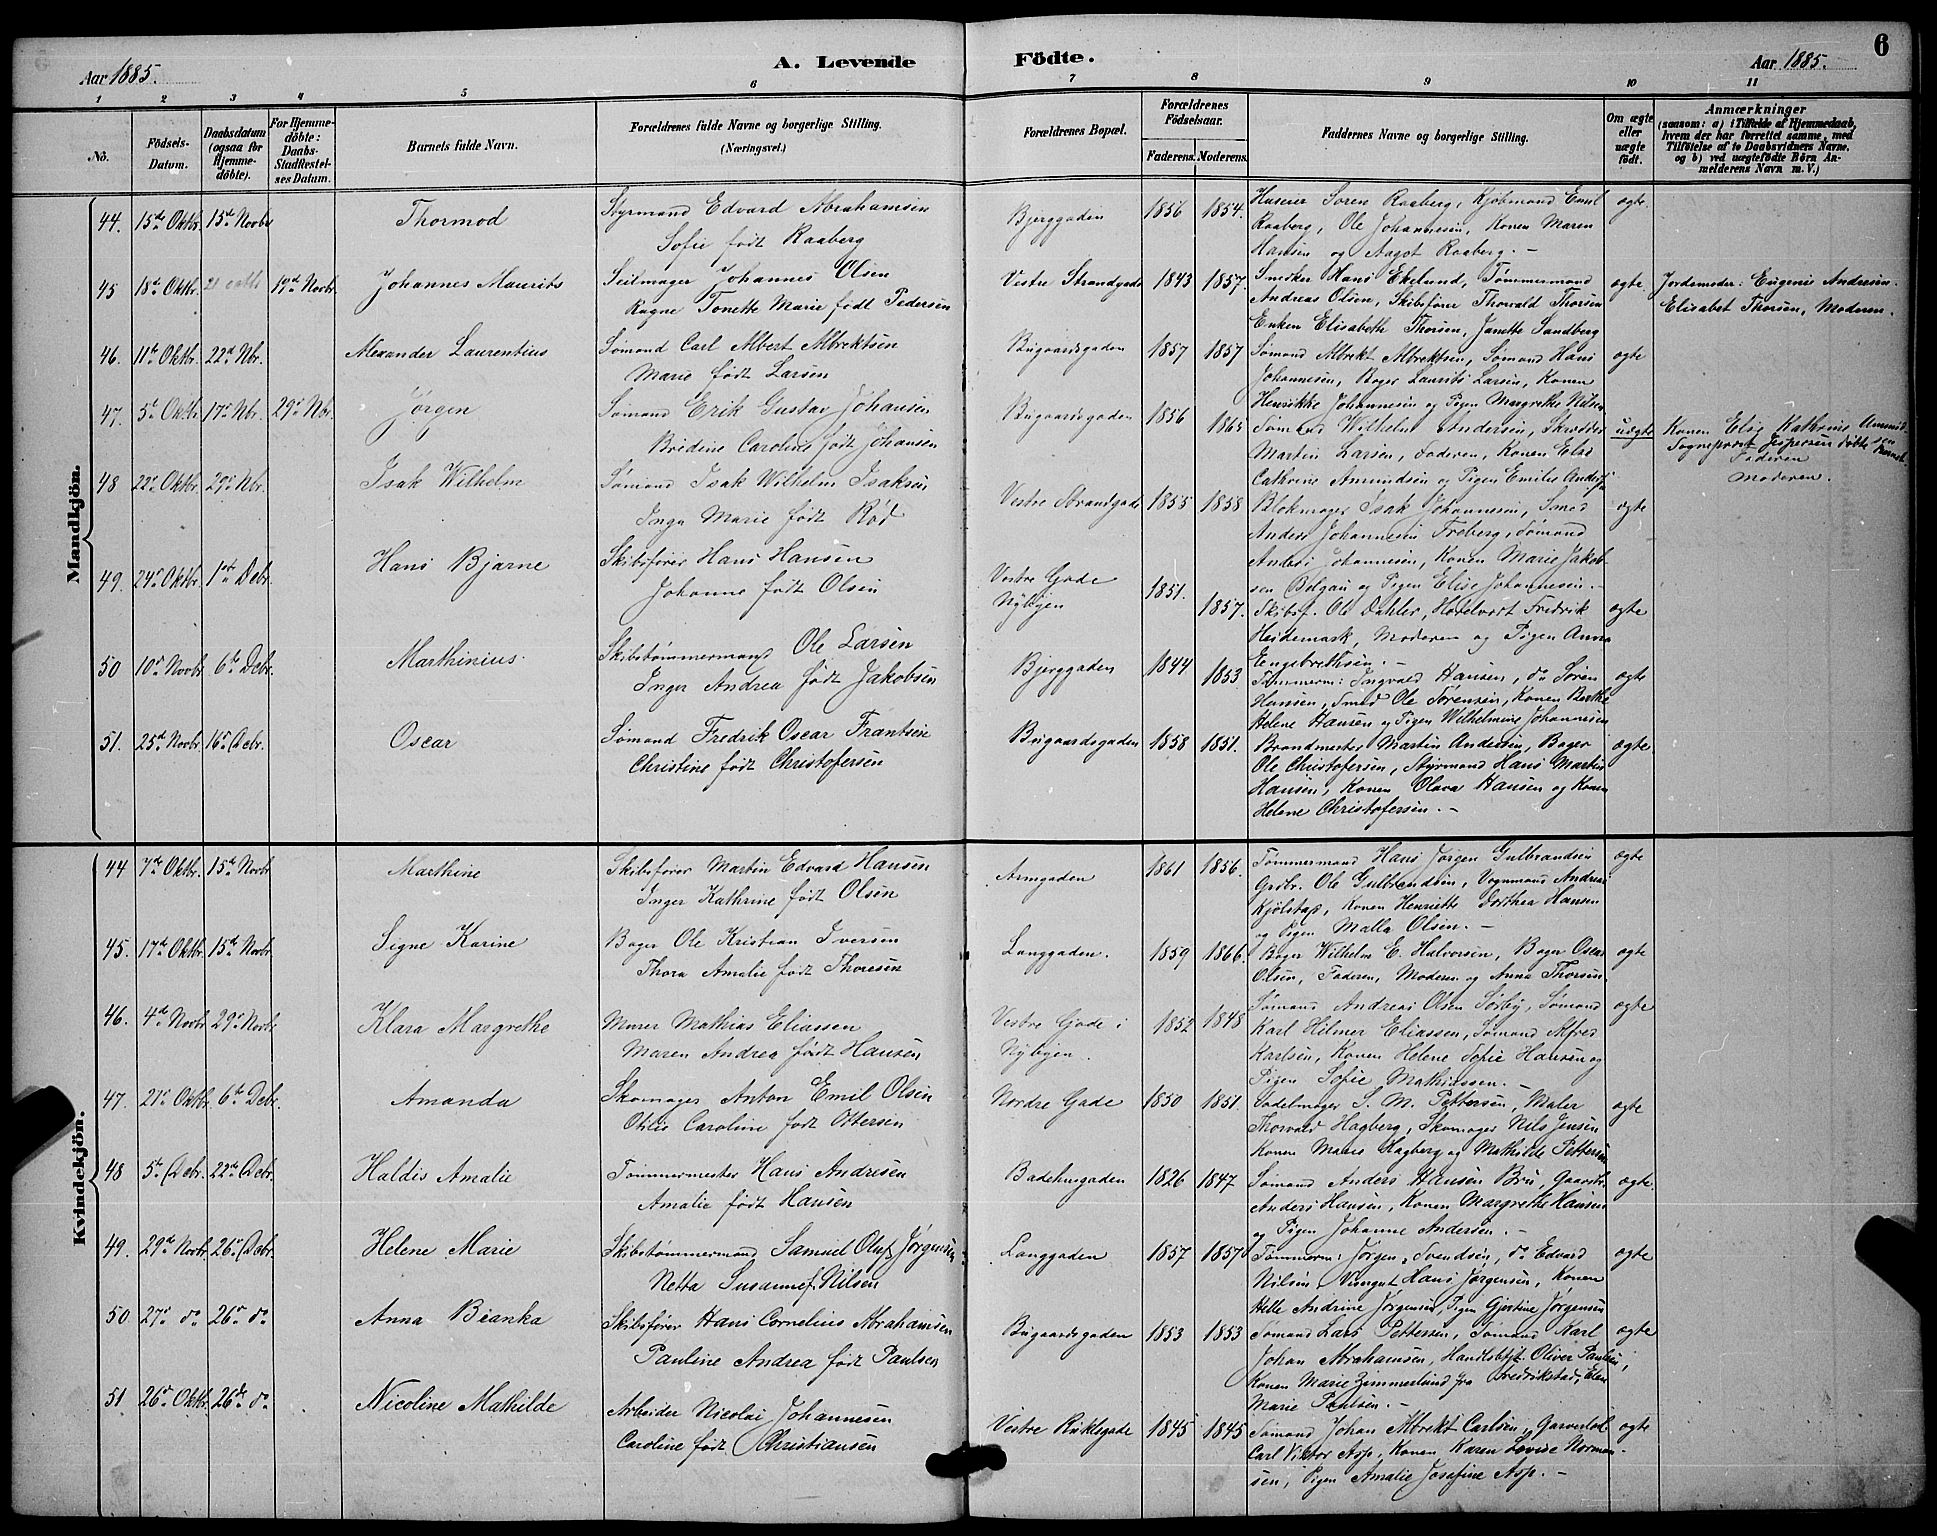 Aar 1885.
A. Levende
Födte.
Aar 1885.
6
1 2 3 4 5 6 7 8 9 10 11
Nô.
Födsels-
Datum.
Daabsdatum
(ogsaa for
Hjemme-
döbte).
For Hjemme-
döbte:
Daabs-
Stadfæstel-
ses Datum.
Barnets fulde Navn.
Forældrenes fulde Navne og borgerlige Stilling.
(Næringsvei.)
Forældrenes Bopæl.
Forældrenes
Födselsaar.
Faderens.
Moderens.
Faddernes Navne og borgerlige Stilling.
Om ægte
eller
uægte
födt.
Anmærkninger
(saasom: a) i Tilfælde af Hjemmedaab,
hvem der har forrettet samme, med
Tilföielse af to Daabsvidners Navne,
og b) ved uægtefödte Börn An-
melderens Navn m. V.)
Mandkjön.
44. 15de Oktbr. 15de Novbr Thormod Styrmand Edvard Abrahamsen Bjerggaden 1856 1854. Huseier Søren Raaberg, Kjøbmand Emil ægte.
Sofie født Raaberg
Raaberg, Ole Johannesen, Konen Maren
Hansen og Aagot Raaberg. —
45 18de Oktbr. 19de Novbr. Johannes Maurits Seilmager Johannes Olsen Vestre Strandgade 1843 1857. Smeker Hans Ekelund, Tømmermand ægte. Jordemoder: Eugenie Andersen.
Ragne Tonette Marie født Pedersen
Andreas Olsen, Skibsfører Thorvald Thorsen
Elisabet Thorsen, Moderen.
Enken Elisabeth Thorsen, Janette Sandberg
46. 11te Oktbr. 22de Nbr. Alexander Laurentius Sømand Carl Albert Albrektsen Bugaardsgaden 1857 1857 Sømand Albrekt Albrektsen, Sømand Hans ægte
Marie født Larsen
Johannesen, Bager Laurits Larsen, Konen
Henrikke Johannesen og Pigen Margrethe Nilsen
47. 5te Oktbr. 17de Nbr. 29de Nbr. Jørgen Sømand Erik Gustav Johansen Bugaardsgaden 1856 1865 Sømand Wilhelm Andersen, Skrædder uægte Konen Elise Kathrine Amund-
Bredine Caroline født Johansen
Martin Larsen, Faderen, Konen Elise
sen
Sogneprest Jespersen døbte
Cathrine Amundsen og Pigen Emilie Andersen
Faderen
Moderen.
48 22de Oktbr. 29de Nbr. Isak Wilhelm Sømand Isak Wilhelm Isaksen Vestre Strandgade 1855 1858 Blokmager Isak Johannesen, Smed ægte
Inga Marie født Rød
Anders Johannesen Froberg, Sømand
Anders Johannesen, Konen Marie Jakob-
sen og Pigen Elise Johannesen. —
49. 24de Oktbr. 1ste Debr. Hans Bjarne Skibsfører Hans Hansen Vestre Gade 1851. 1857. Skibsf. Ole Dahler, Hotelvært Fredrik ægte
Johanne født Olsen Nybyen
Heidemark, Moderen og Pigen Anna
Engebrethsen. —
50 10de Novbr. 6te Debr. Marthinius. Skibstømmermand Ole Larsen Bjerggaden 1844 1853 Tømmerm: Ingvald Hansen, do Søren ægte
Inger Andrea født Jakobsen
Hansen, Smed Ole Sørensen, Konen Berthe
Helene Hansen og Pigen Wilhelmine Johannesen
51. 25de Novbr. 16de Debr. Oscar Sømand Fredrik Oscar Frantsen Bugaardsgaden 1858 1851. Brandmester Martin Andersen, Bager ægte.
Christine født Christofersen
Ole Christofersen, Styrmand Hans Martin
Hansen, Konen Olava Hansen og Konen
Helene Christofersen. —
Kvindekjön.
44 7de Oktbr. 15de Novbr Marthine Skibsfører Martin Edvard Hansen Armgaden 1861 1856. Tømmermand Hans Jørgen Gulbrandsen ægte
Inger Kathrine født Olsen
Grdbr. Ole Gulbrandsen, Vognmand Andreas
Kjølstad, Konen Henriette Dorthea Hansen
og Pigen Malla Olsen. —
45. 17de Oktbr. 15de Novbr. Signe Karine Bager Ole Kristian Iversen Langgaden. 1859 1866. Bager Wilhelm E. Halvorsen, Bager Oscar ægte
Thora Amalie født Thoresen
Olsen, Faderen, Moderen og Anna Thorsen.
46. 4de Novbr 29de Novbr. Klara Margrethe Murer Mathias Eliassen Vestre Gade i 1852 1848 Sømand Andreas Olsen Sørby, Sømand ægte
Maren Andrea født Hansen Nybyen.
Karl Hilmer Eliassen, Sømand Alfred
Karlsen, Konen Helene Sofie Hansen og
Pigen Sofie Mathiassen. —
47. 21de Oktbr. 6te Debr. Amanda Skomager Anton Emil Olsen Nordre Gade 1850 1851. Sadelmager S. M. Pettersen, Maler ægte
Otilie Caroline født Ottersen
Thorvald Hagberg, Skomager Nils Jensen
Konen Maren Hagberg og Mathilde Pettersen
48 5te Debr. 22de Debr. Haldis Amalie Tømmermester Hans Andresen Badehusgaden 1826 1847 Sømand Anders Hansen Bru, Gaardbr. ægte
Amalie født Hansen
Anders Hansen, Konen Margrethe Hansen
og Pigen Johanne Andersen. —
49. 29de Novbr. 26de Debr. Helene Marie Skibstømmermand Samuel Oluf Jørgensen Langgaden 1857 1857 Tømmerm: Jørgen Svendsen, do Edvard ægte
Netta Susanne f. Nilsen
Nilsen, Hans Jørgensen, Konen
Helle Andrine Jørgensen, Pigen Gjertine Jørgensen
50 27de do 26de do Anna Bianka Skibsfører Hans Cornelius Abrahamsen Bugaardsgaden 1853 1853 Sømand Lars Pettersen, Sømand Karl ægte
Pauline Andrea født Paulsen
Johan Abrahamsen, Handlsbtj. Oliver Paulsen,
Konen Marie Zimmerlund fra Fredrikstad, Elen
Marie Paulsen. —
51 26de Oktbr. 26de do Nicoline Mathilde Arbeider Nicolai Johannesen 1845 1845 Sømand Johan Albrekt Carlsen, ægte
Caroline født Christiansen
Carl Viktor Asp, Konen Karen Lovise Norman-
sen, Pigen Amalie Josefine Asp. —